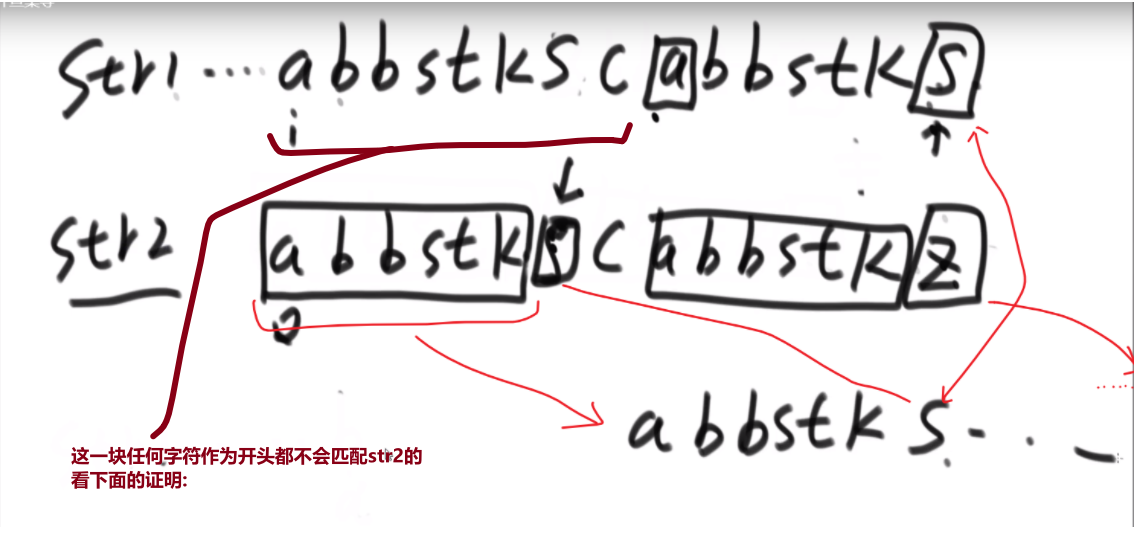 str1 ... abbstksc abbstks
i
str2 abbstksc abbstkz
0
abbstks...
这一块任何字符作为开头都不会匹配str2的
看下面的证明: